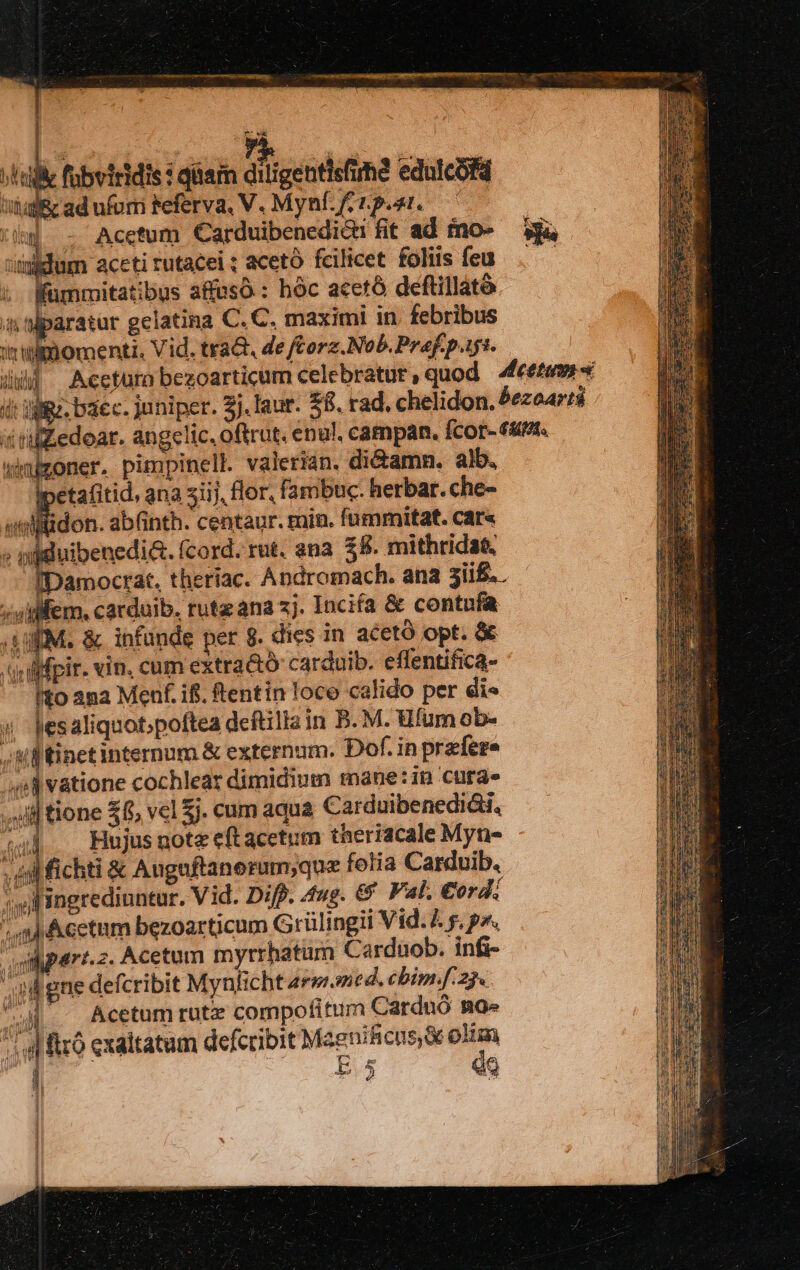 73.
subviridis : quàm diligentissimè edulcora
& ad usum reserva. V. Mynſ. f. 1. p. 41.
Acetum Carduibenedicti fit ad mo-
dum aceti rutacei ; acetô ſcilicet foliis ſeu
ſummitatibus affusô : hôc acetô deſtillatô
paratur gelatina C. C. maximi in febribus
momenti. Vid. tract. de ſcorz. Nob. Præſ. p. 151.
Acetum bezoarticum celebratur, quod Acetum
bacc. juniper. ℥j. laur. ℥ß. rad. chelidon. bezoarti
Zedoar. angelic. oſtrut. enul. campan. ſcor- cum.
zoner. pimpinell. valerian. dictamn. alb.
petaſitid. ana ʒiij, flor, ſambuc. herbar. che-
lidon. abſinth. centaur. min. ſummitat. car-
duibenedict. ſcord. rut. ana ℥ß. mithridat.
Damocrat. theriac. Andromach. ana ʒiiß.
ſem. carduib. rutæ ana ʒj. Inciſa & contuſa
M. & infunde per 8. dies in acetô opt. &
ſpir. vin. cum extractô carduib. eſſentifica-
to ana Menſ. iß. ſtent in loco calido per di-
es aliquot, poſtea deſtilla in B. M. Uſum ob-
tinet internum & externum. Doſ. in præſer-
vatione cochlear dimidium mane: in cura-
tione ℥ß, vel ℥j. cum aqua Carduibenedicti.
Hujus notæ eſt acetum theriacale Myn-
ſichti & Auguſtanorum, quæ folia Carduib.
ingrediuntur. Vid. Diſp. Aug. & Val. Cord.
Acetum bezoarticum Grülingii Vid. l. 5. px.
part. 2. Acetum myrrhatum Carduob. inſi-
gne deſcribit Mynſicht arm. med. chim. f. 23.
Acetum rutæ compoſitum Carduô no-
ſtrô exaltatum deſcribit Magnificus, & olim
E 5 de